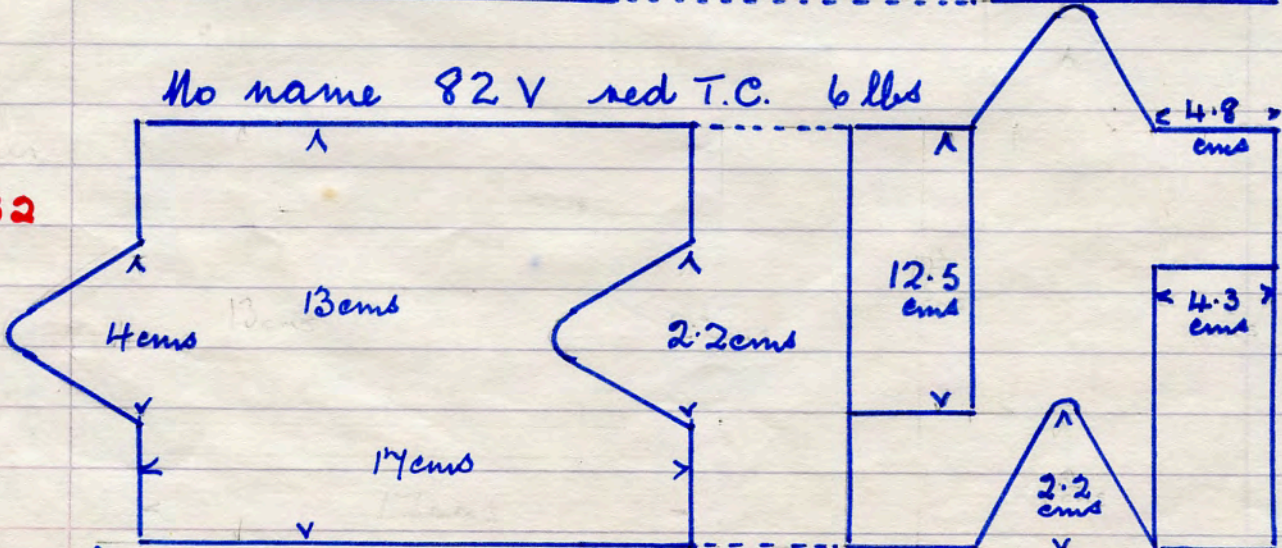 No name 82 V red T.C. 6 lbs
4.8
cms
2
12.5
cms
13cms
4.3
cms
4cms
2.2cms
17cms
2.2
cms